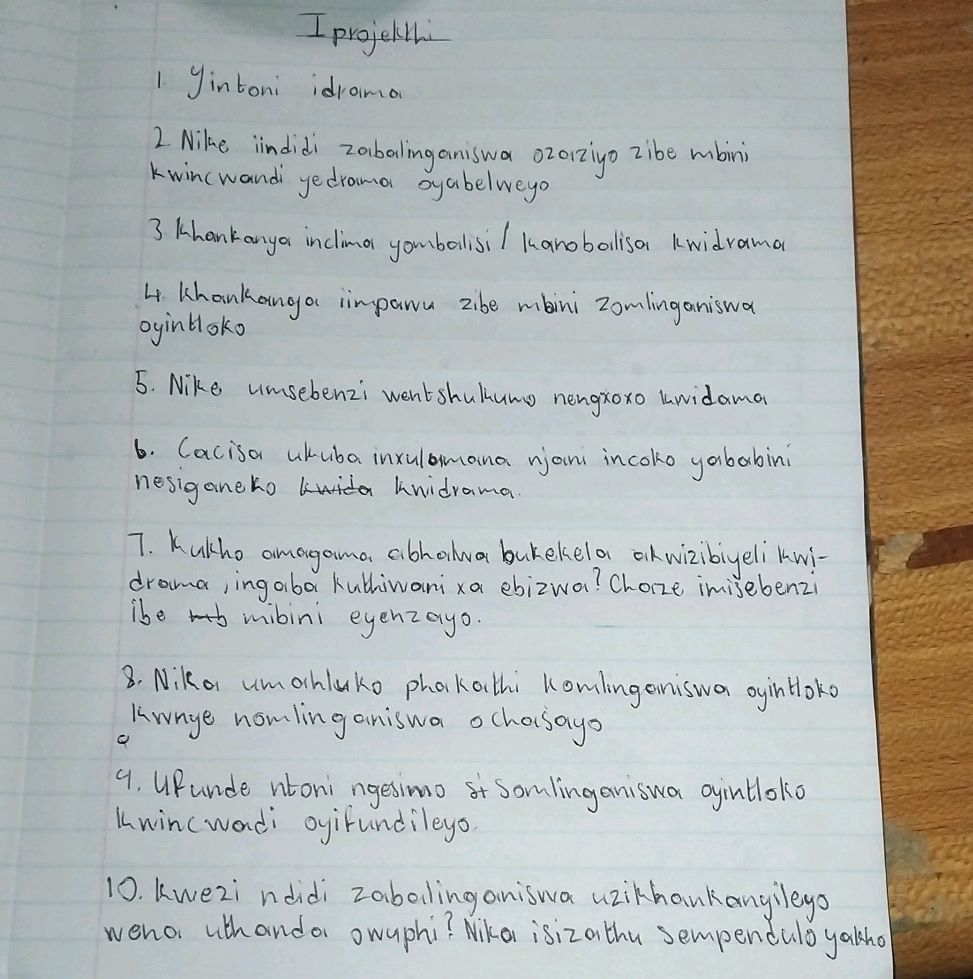 Iprojekthi
1 Yintoni idrama
2 Nike iindidi zabalinganiswa ozaziyo zibe mbini
kwincwandi yedrama oyabelweyo
3 Khankanya indima yombalisi / kanobalisa kwidrama
4. Khankanya iimpawu zibe mbini zomlinganiswa
oyintloko
5. Nike umsebenzi wentshukumo nengxoxo kwidama
6. Cacisa ukuba inxulumana njani incoko yababini
nesiganeko kwida kwidrama.
7. Kukho amagama abhalwa bukekela akwizibiyeli kwi-
drama, ingaba kuthiwani xa ebizwa? Chaze imisebenzi
ibe mb mibini eyenzayo.
8. Nika umahluko phakathi komlinganiswa oyintloko
kwnye nomlinganiswa ochasayo
9
9. Ufunde ntoni ngesimo st somlinganiswa oyintloko
kwincwadi oyifundileyo.
10. Kwezi ndidi zabalinganiswa uzikhankanyileyo
wena uthanda owuphi? Nika isizathu sempendulo yakho